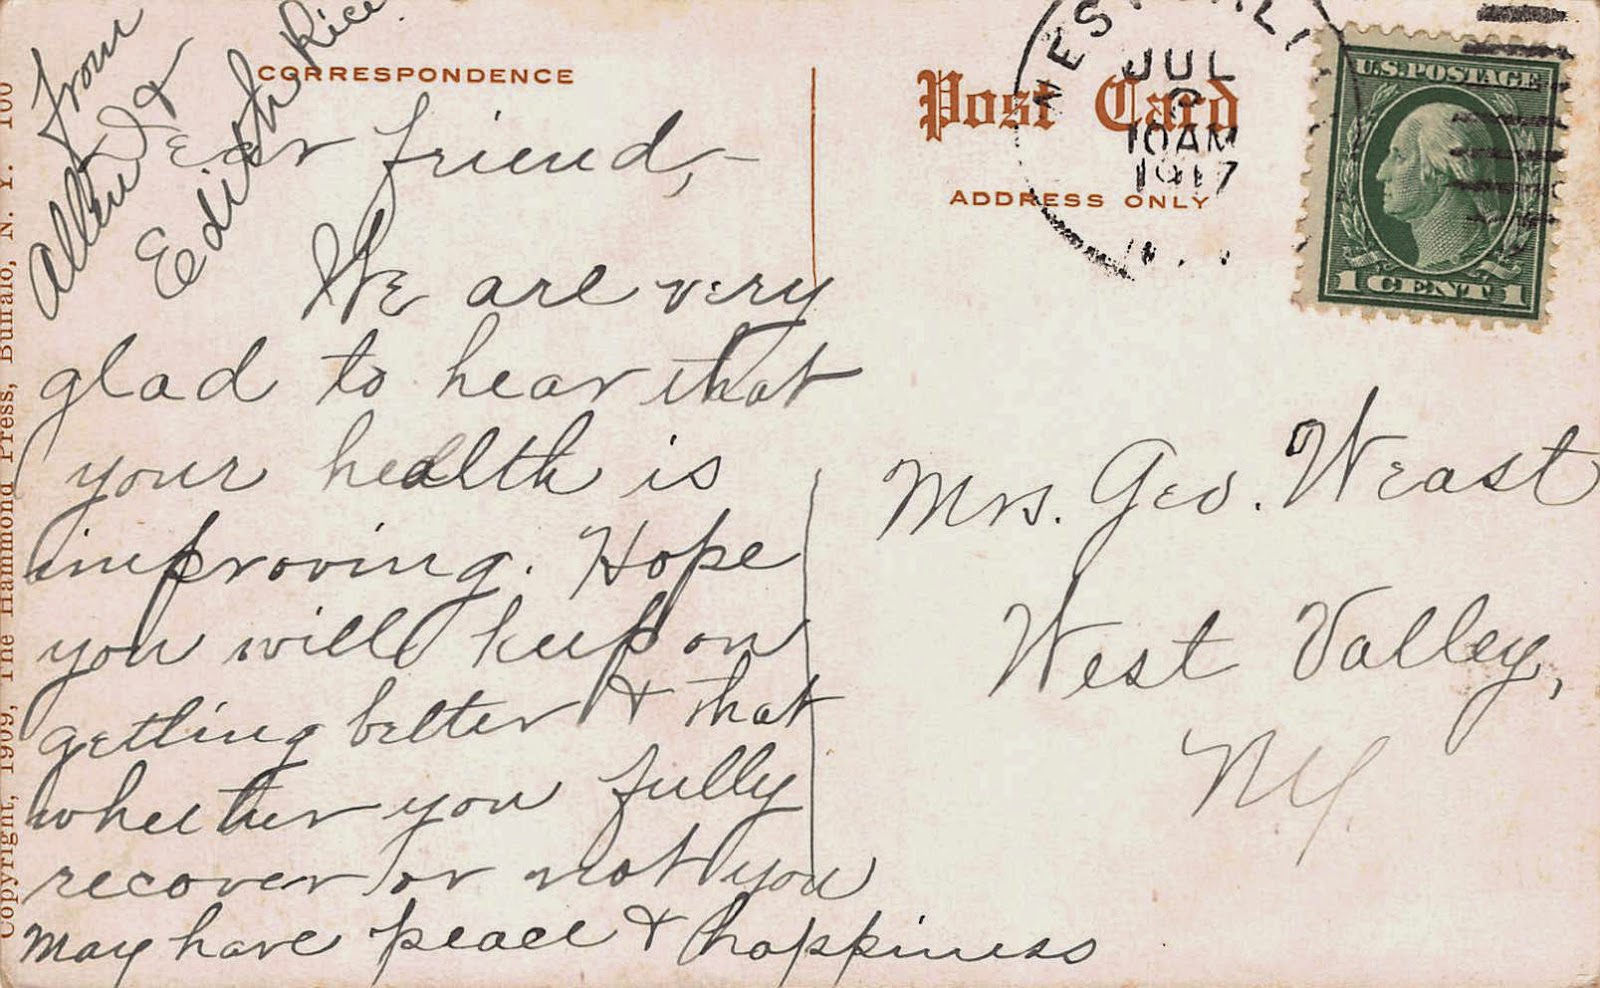 from
Allen &
Edith Rice
CORRESPONDENCE
Dear friend,-
We are very
glad to hear that
your health is
improving. Hope
you will keep on
getting better & that
whether you fully
recover or not you
may have peace & happiness
Post Card
ADDRESS ONLY
JUL
10AM
1917
U.S. POSTAGE
1 CENT 1
Mrs. Geo. Weast
West Valley,
NY.
Copyright, 1909, The Hammond Press, Buffalo, N. Y. 100